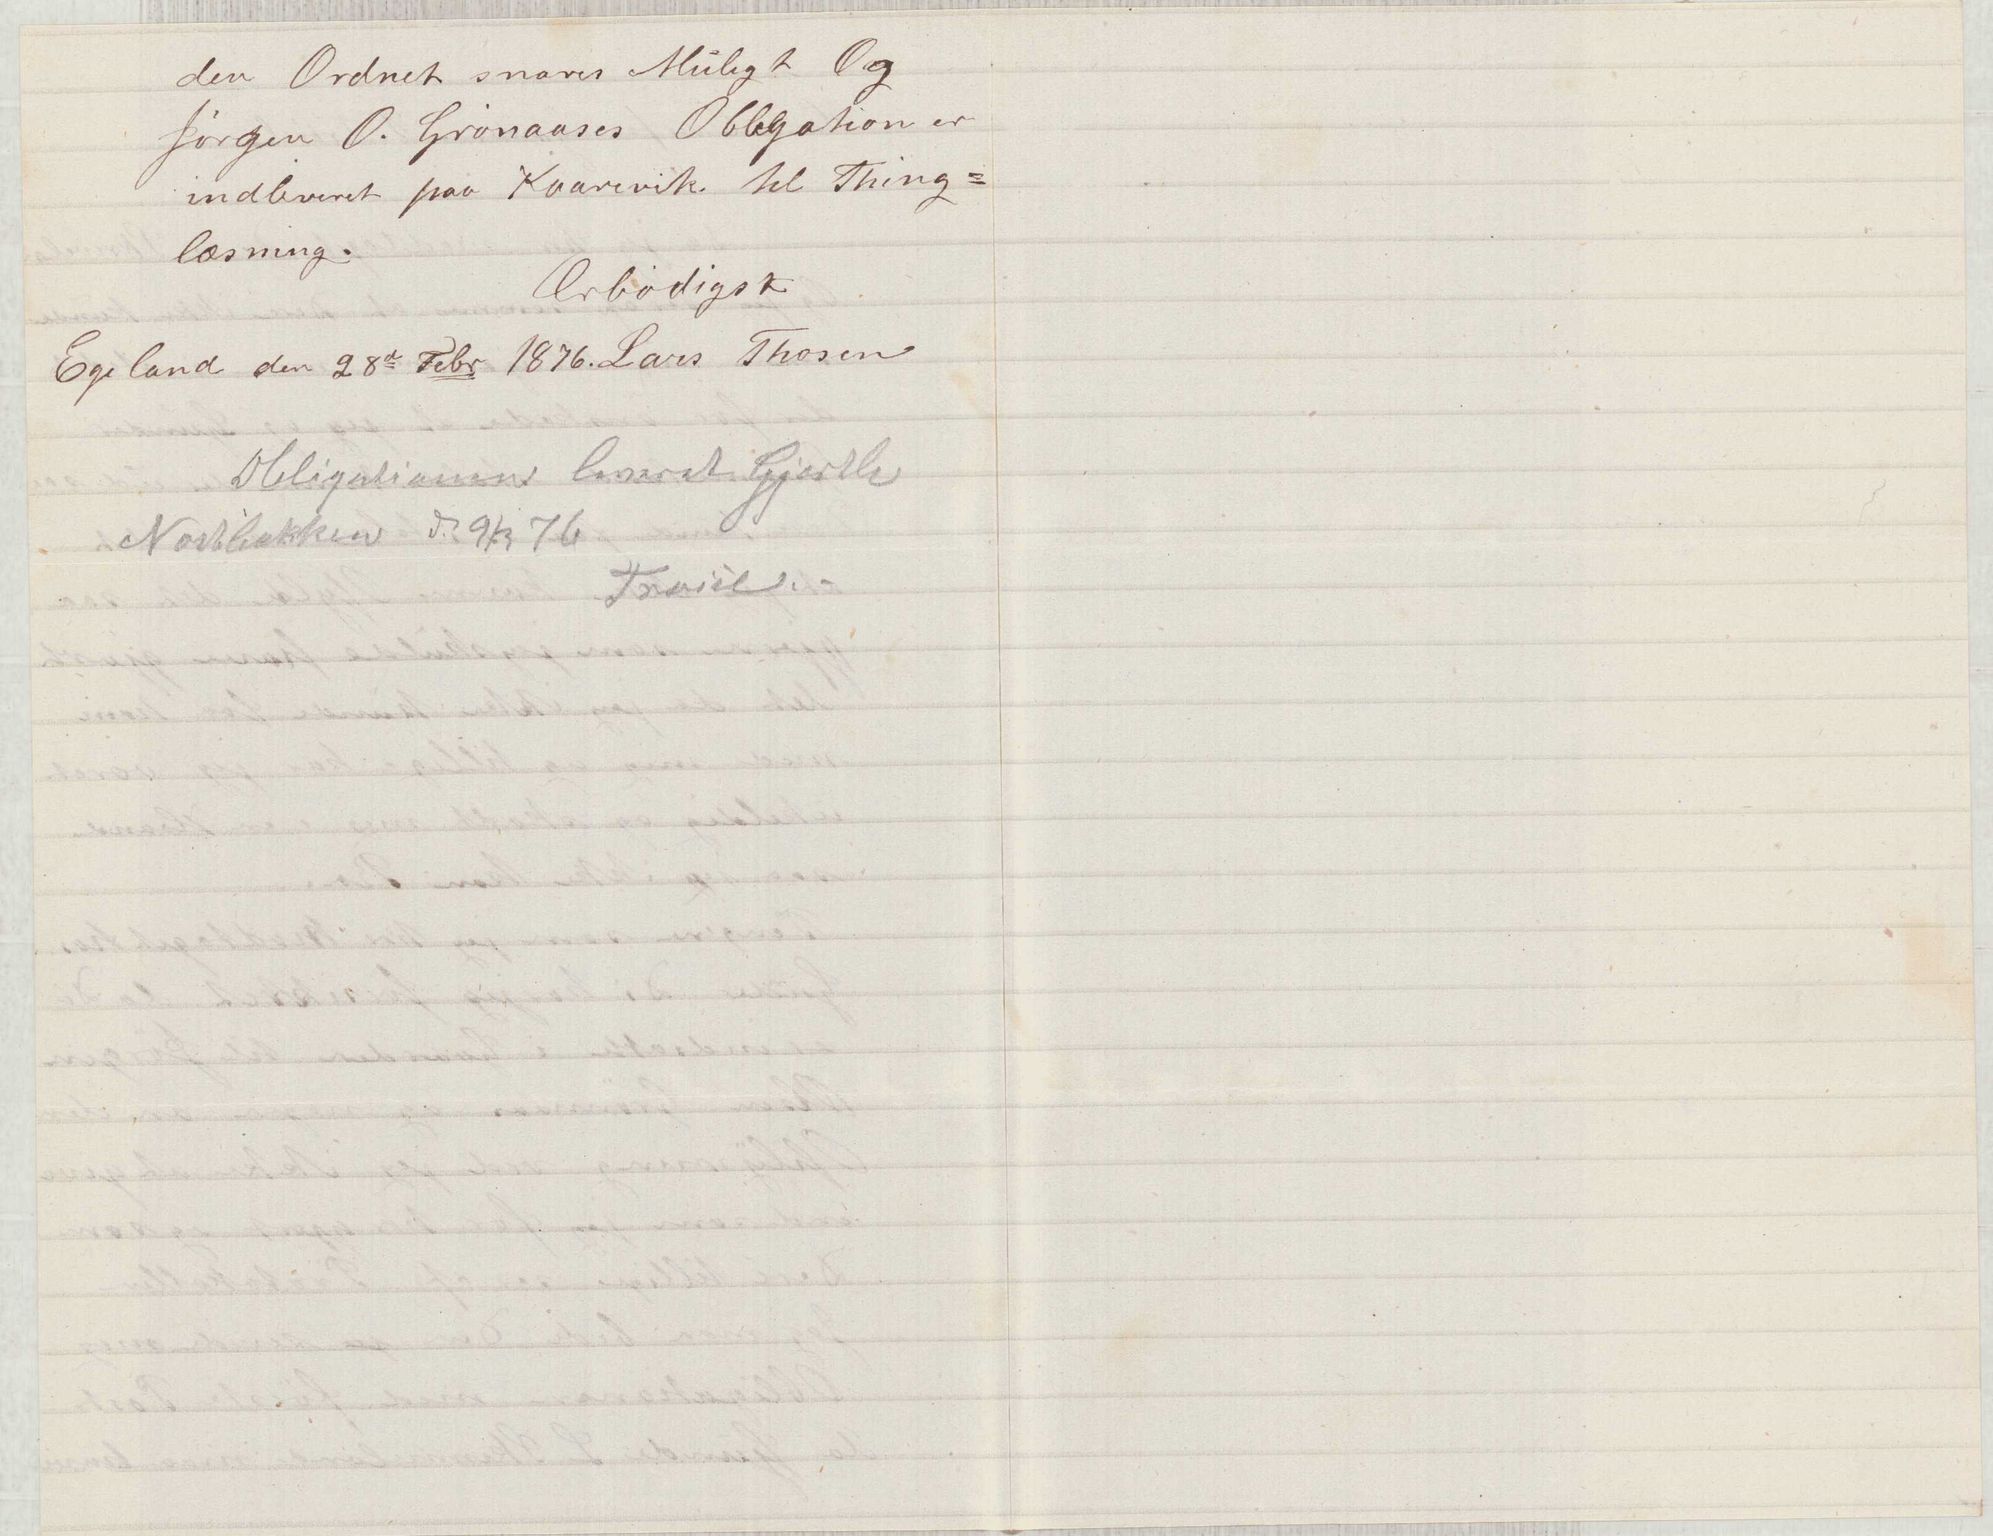 den Ordnet snares Müligt Og
Jörgen O. Grönaases Obligation er
indleveret paa Kaarevik til Thing=
læsning.
Ærbödigst
Egeland den 28d Febr 1876. Lars Thosen
Obligationen leveret Gjertle
Nordbakken d. 9/3 76